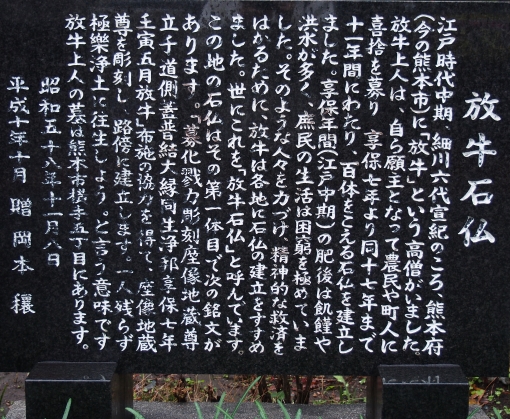 放牛石仏
江戸時代中期、細川六代宣紀のころ、熊本府
(今の熊本市)に「放牛」という高僧がいました。
放牛上人は、自ら願主となって農民や町人に
喜捨を募り 享保七年より同十七年まで
十一年間にわたり、百体をこえる石仏を建立し
ました。享保年間(江戸中期)の肥後は飢饉や
洪水が多く、庶民の生活は困窮を極めていま
した。そのような人々を力づけ、精神的な救済を
はかるために、放牛は各地に石仏の建立をすすめ
ました。世にこれを「放牛石仏」と呼んでいます。
この地の石仏はその第一体目で次の銘文が
あります。「募化戮力彫刻座像地蔵尊
立于道側蓋普結大縁同生浄邦享保七年
壬寅五月放牛」布施の協力を得て、座像地蔵
尊を彫刻し 路傍に建立します。一人残らず
極楽浄土に往生しよう。と言う意味です
放牛上人の墓は熊本市横手五丁目にあります。
昭和五十八年十一月八日
平成十年十月 贈 岡本 穰